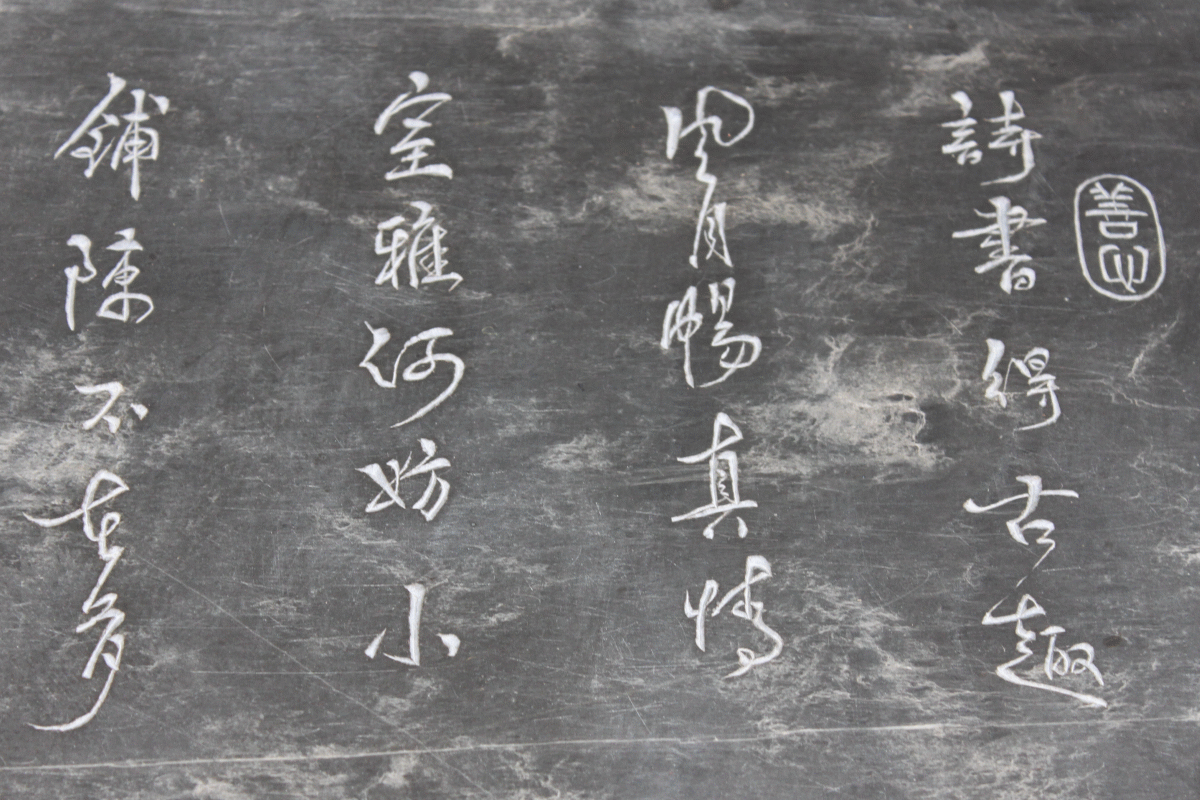 善心
詩書得古趣
風月暢真情
室雅何妨小
鋪陳不在多